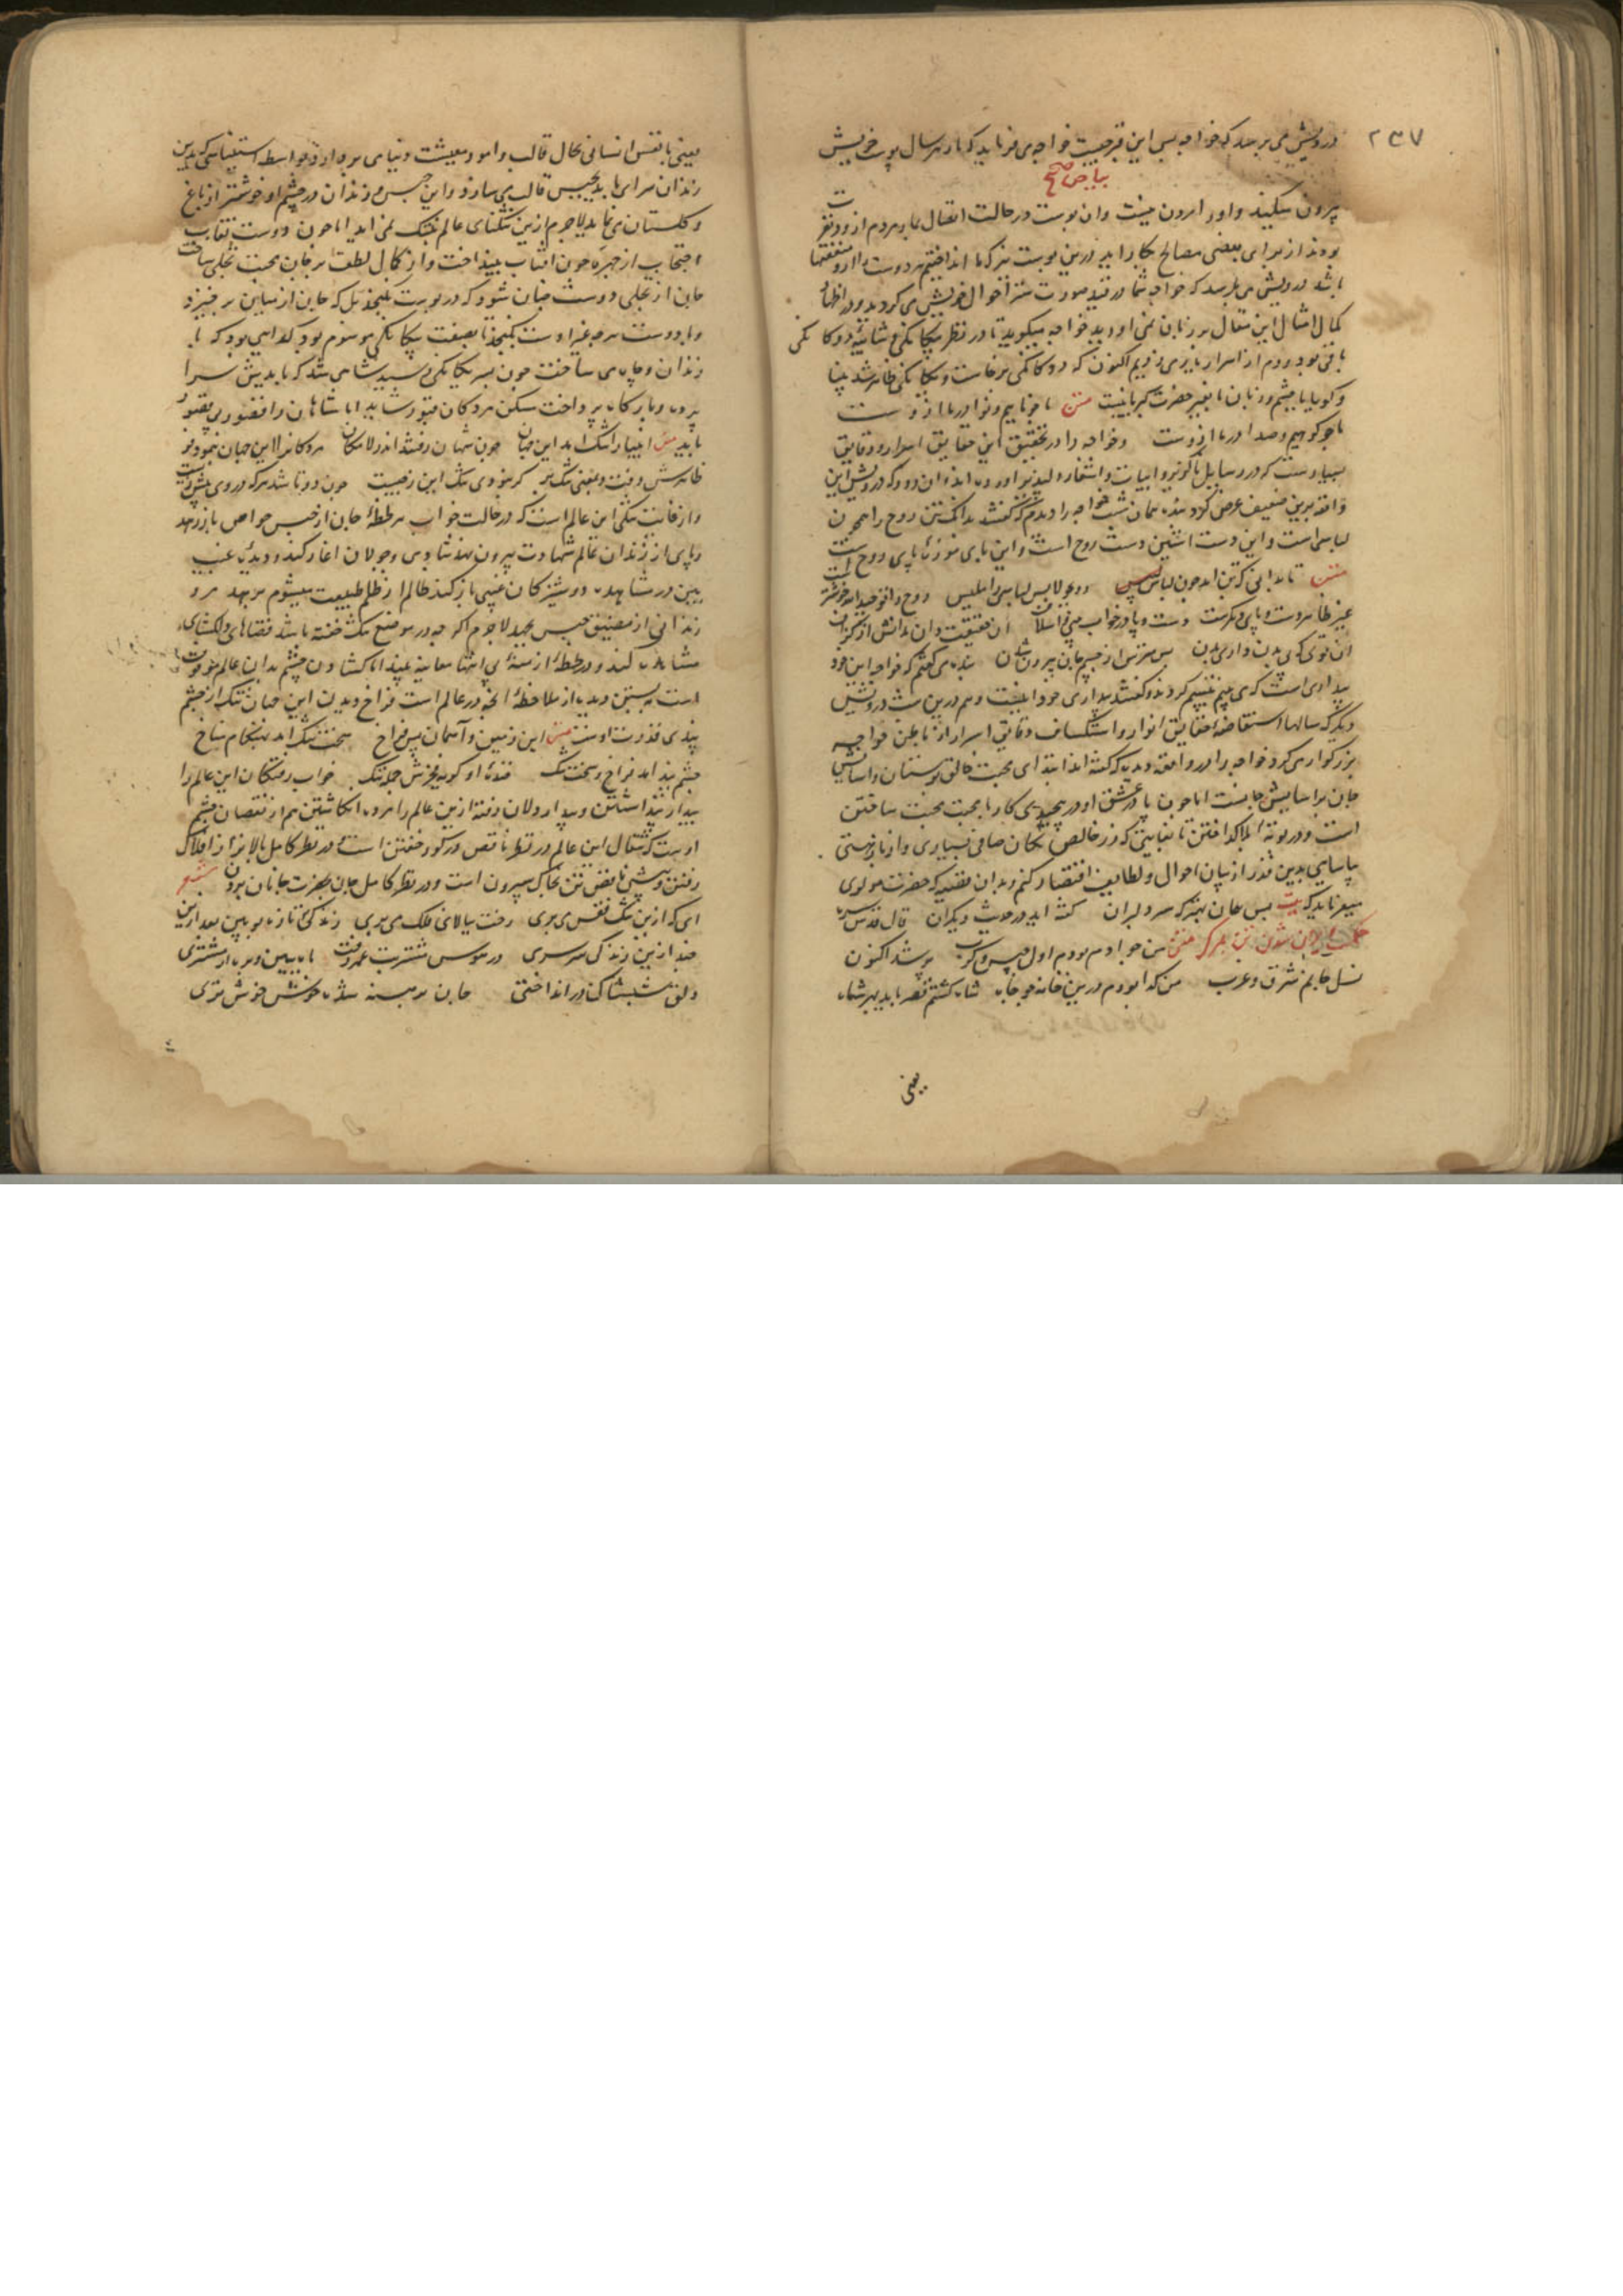 ۲۳۷
درویش می پرسد که خواجه پس این قبر چیست خواجه می فرماید که مار هر سال پوست خویش
بیاض صحیح
بیرون میکند و او را مردن نیست و آن پوست در حالت انتقال مار مردم از و در نظر
بودند از برای بعضی مصالح بکار آید درین پوست نیز که ما انداختیم هر دوست را ازو منفعتها
باشد درویش می پرسد که خواجه شما در قید صورت ستر احوال خویش می کردید و در اظهار
کمال امثال این مقال بر زبان نمی آوردید خواجه میگوید تا در نظر بیگانگی و شائبه دوگانگی
باقی بود و دم از اسرار نا بری می زدیم اکنون که دوگانگی برخاست و یگانگی ظاهر شد بینا
و گویا با چشم و زبان ما بغیر حضرت کبریا نیست متن ما چو ناییم و نوا در ما از وست
ما چو کوهیم و صدا در ما ازوست و خواجه را در تحقیق این حقایق اسرار و دقایق
بسیارست که در رسایل مذکور و ابیات و اشعار
واقعه برین ضعیف عرض کردند همان شب خواجه را دیدم که گفتند بدانک تن روح را همچون
لباسی است و این دست آستین دست روح است و این پای موزه پای روح است
متن تا بدانی که تن آمد چون لباس رو بجو لابس لباسی را ملیس روح را توحید الله خوشتر است
غیر ظاهر دست و پای دیگرست دست و پا در خواب بینی و ائتلاف آن حقیقت دان مدانش از گزاف
آن توی که بی بدن داری بدن پس مترس از جسم جان بیرون شدن بنده می گفتم که خواجه این خود
بیداری است که می بینم تبسم کردند و گفتند بیداری خود اینست و هم درین شب درویش
دیگر که سالها استفاضه حقایق انوار و استکشاف دقایق اسرار از باطن خواجه
بزرگوار می کرد خواجه را در واقعه دید که گفته اند ابتدای محبت خالق بوستان و آسایش
جان بر آسایش جانست اما چون پا در عشق او در پیچیدی کار با محبت محنت ساختن
است و در بوته ابلا گداختن تا بغایتی که زر خالص
بدین قدر از بیان احوال و لطایف اقتصار کنم و بدان مقید که حضرت مولوی
میفرماید که بیت بس همان بهتر که سر دلبران گفته آید در حدیث دیگران قال قدس سره
متن من جو آدم بودم اول حبس کرب پر شد اکنون
نسل جانم شرق و غرب من گدا بودم درین خانه چو چاه شاه گشتم قصر باید بهر شاه
یعنی
یعنی تا نفس انسانی بحال قالب و امور معیشت دنیا می پردازد بواسطه استیناسی که بدین
زندان سرای
و گلستان می نماید لاجرم ازین تنگنای عالم بتنگ نمی آید اما چون دوست نقاب
احتجاب از چهره چون آفتاب بینداخت و از کمال لطف بر جان محبت تجلی ساخت
جان از تجلی دوست چنان شود که در پوست نگنجد بل که جان از میان بر خیزد
و با دوست هر چه غیر اوست نگنجد تا بصفت بیگانگی موسوم بود گدایی بود که با
زندان و چاه می ساخت چون بسر یگانگی رسید شاهی شد که باید بیش سرا
پرده و بارگاه پرداخت مسکن مردگان قبور شاید اما شاهان را قصور بی قصور
باید متن انبیا را تنگ آمد این جهان چون شهان رفتند اندر لامکان مردگان را این جهان بنمود فر
ظاهرش زفت و بمعنی تنگ بر گر نبودی تنگ این افغان زچیست چون دو تا شد هر که در وی بیش زیست
و از غایت تنگی این عالم است که در حالت خواب هر لحظه جان از حبس حواس باز رهد
و پای از زندان عالم شهادت بیرون نهد شادی و جولان آغاز کند و دیده غیب
بین در مشاهده دوشیزگان غیبی باز کند ظالم از ظلم طبیعت میشوم برهد مرد
زندانی از مضیق حبس بجهد لاجرم اگر چه در موضع تنگ خفته باشد فضاهای دلگشای
مشاهده کند و در لحظه ازمنه بی انتها معاینه بیند اما گشادن چشم بدان عالم موقوف
است به بستن دیده از ملاحظه آنچه در عالم است فراخ دیدن این جهان تنگ از چشم
بندی قدرت اوست متن این زمین و آسمان بس فراخ سخت تنگ آمد بهنگام مناخ
چشم بند آمد فراخ و سخت تنگ خنده او گریه فخرش جمله ننگ خواب رفتگان این عالم را
بیدار پنداشتن و بیدار دلان رفته ازین عالم را مرده انگاشتن هم از نقصان چشم
اوست که انتقال این عالم در نظر ناقص در گور خفتن است و در نظر کامل بالا بر از افلاک
رفتن و پیش ناقص تن بخاک سپردن است و در نظر کامل جان بحضرت جانان بردن شعر
ای که ازین تنگ قفس می پری رخت ببالای فلک می بری زندگی تازه ببین بعد ازین
چند ازین زندگی سرسری در هوس مشتریت عمر رفت ماه ببین و بره از مشتری
دلق شپشناک در انداختی جان برهنه شده خوش خوش تری